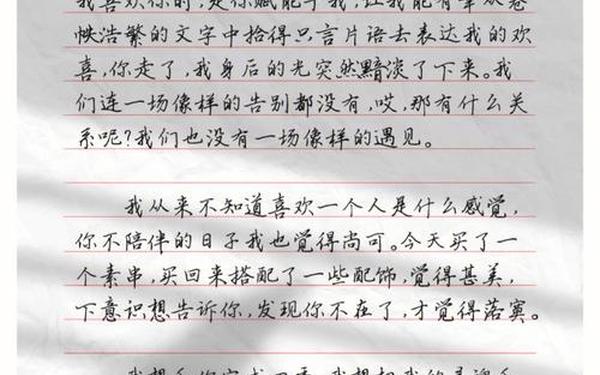 我喜欢你时,是你赋能于我,让我能有幸从卷
帙浩繁的文字中拾得只言片语去表达我的欢
喜,你走了,我身后的光突然黯淡了下来。我
们连一场像样的告别都没有,哎,那有什么关
系呢?我们也没有一场像样的遇见。
我从来不知道喜欢一个人是什么感觉,
你不陪伴的日子我也觉得尚可。今天买了一
个素串,买回来搭配了一些配饰,觉得甚美,
下意识想告诉你,发现你不在了,才觉得落寞。